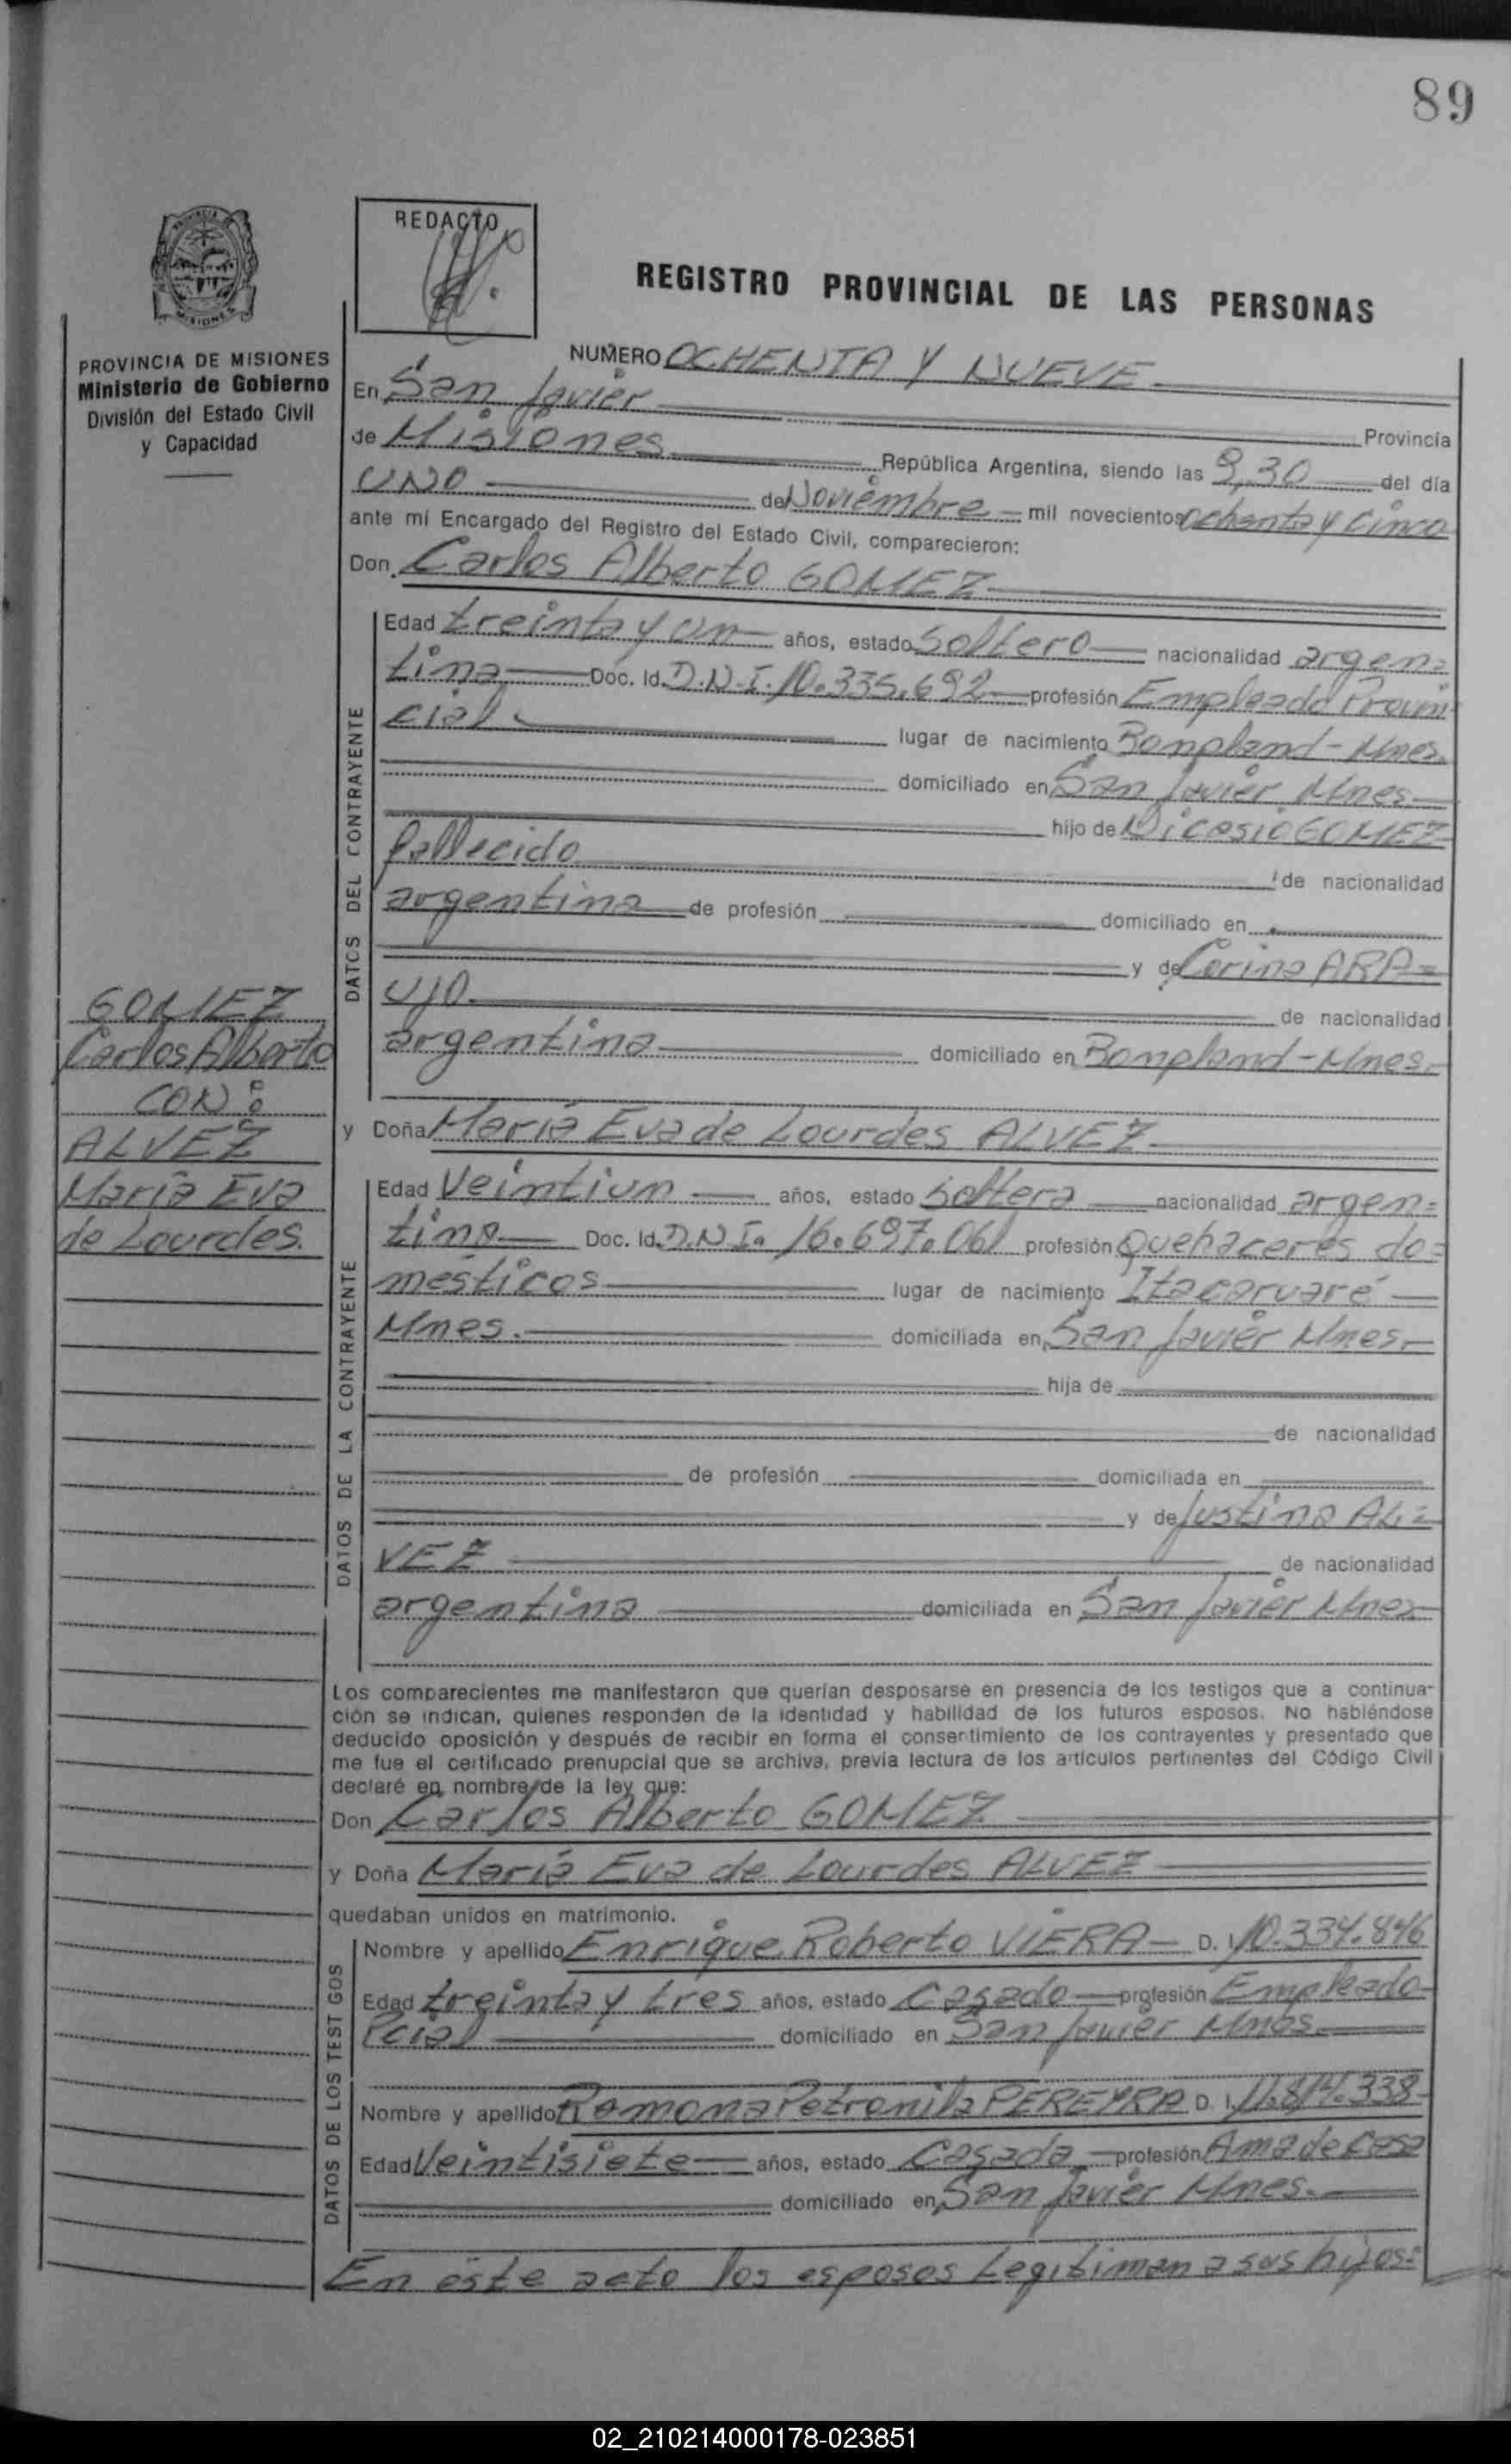 89
REDACTO
REGISTRO PROVINCIAL DE LAS PERSONAS
PROVINCIA DE MISIONES
Ministerio de Gobierno
División del Estado Civil
y Capacidad
NUMERO OCHENTA Y NUEVE
En San Javier
Provincia
de Misiones República Argentina, siendo las 9,30 del día
UNO de Noviembre mil novecientos ochenta y cinco
ante mí Encargado del Registro del Estado Civil, comparecieron:
Don Carlos Alberto GOMEZ
DATOS DEL CONTRAYENTE
Edad treinta y un años, estado soltero nacionalidad argen=
tina Doc. Id. D.N.I. 10.335.692 profesión Empleado Provin
cial lugar de nacimiento Bonpland - Mnes.
domiciliado en San Javier Mnes
hijo de Nicasio GOMEZ
fallecido de nacionalidad
argentina de profesión domiciliado en
y de Corina ARA=
UJO de nacionalidad
argentina domiciliado en Bonpland - Mnes.
GOMEZ
Carlos Alberto
CON:
ALVEZ
María Eva
de Lourdes.
y Doña María Eva de Lourdes ALVEZ
DATOS DE LA CONTRAYENTE
Edad Veintiun años, estado soltera nacionalidad argen=
tina Doc. Id. D.N.I. 16.697.061 profesión Quehaceres do=
mesticos lugar de nacimiento Itacaruaré
Mnes. domiciliada en San Javier Mnes.
hija de
de nacionalidad
de profesión domiciliada en
y de Justina AL=
VEZ de nacionalidad
argentina domiciliada en San Javier Mnes
Los comparecientes me manifestaron que querían desposarse en presencia de los testigos que a continua-
ción se indican, quienes responden de la identidad y habilidad de los futuros esposos. No habiéndose
deducido oposición y después de recibir en forma el consentimiento de los contrayentes y presentado que
me fue el certificado prenupcial que se archiva, previa lectura de los artículos pertinentes del Código Civil
declaré en nombre de la ley que:
Don Carlos Alberto GOMEZ
y Doña María Eva de Lourdes ALVEZ
quedaban unidos en matrimonio.
DATOS DE LOS TESTIGOS
Nombre y apellido Enrique Roberto VIERA D. I. 10.334.846
Edad treinta y tres años, estado Casado profesión Empleado
Pcial domiciliado en San Javier Mnes.
Nombre y apellido Ramona Petronila PEREYRA D. I. 11.814.338
Edad Veintisiete años, estado Casada profesión Ama de Casa
domiciliado en San Javier Mnes.
En este acto los esposos Legitiman a sus hijos:
02_210214000178-023851